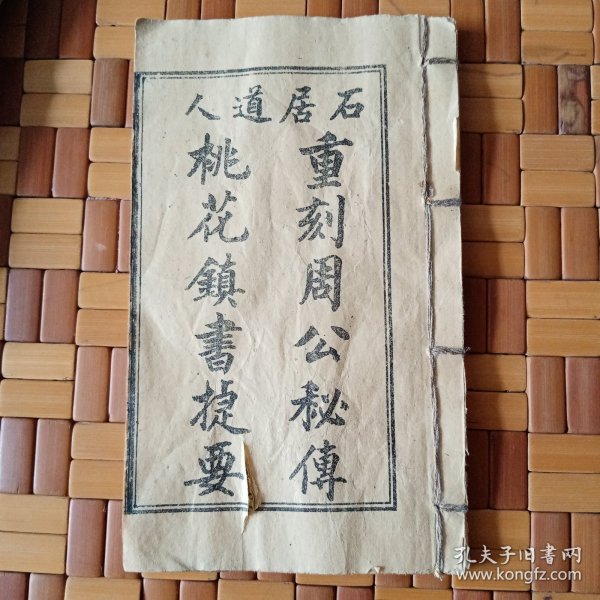 石居道人
重刻周公秘傳
桃花鎮書捷要
孔夫子旧書网
www.kongfz.com